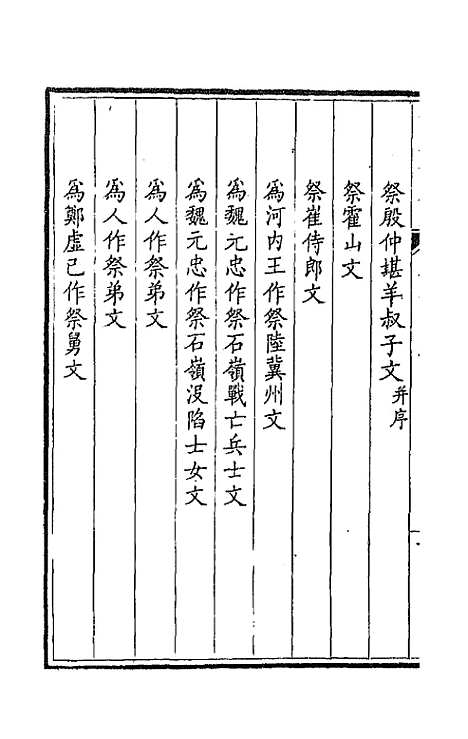 祭殷仲堪羊叔子文并序
祭霍山文
祭崔侍郎文
為河内王作祭陸冀州文
為魏元忠作祭石嶺戰亡兵士文
為魏元忠作祭石嶺没陷士女文
為人作祭弟文
為人作祭弟文
為鄭虛已作祭舅文